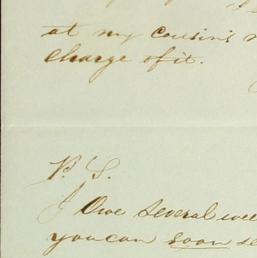 at my cousin's
charge of it.
P. S.
I owe several
you can soon